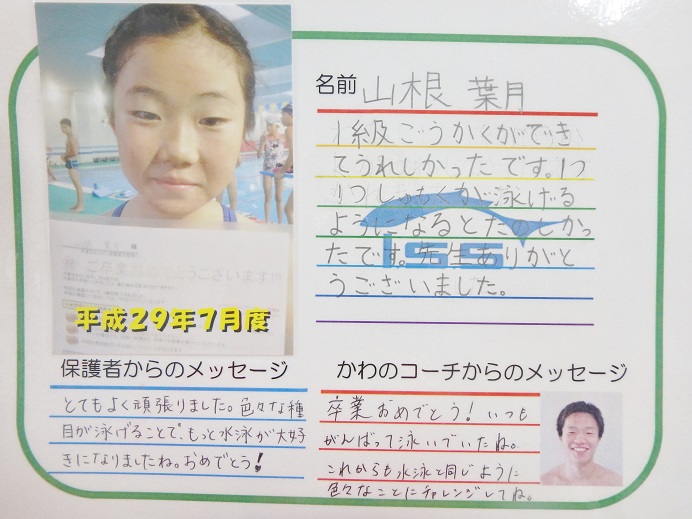 名前 山根 葉月
1級ごうかくができ
てうれしかったです。1つ
1つしゅもくが泳げる
ようになるとたのしかっ
たです。先生ありがと
うございました。
ISS
ございます!!!
平成29年7月度
保護者からのメッセージ
とてもよく頑張りました。色々な種
目が泳げることで、もっと水泳が大好
きになりましたね。おめでとう!
かわのコーチからのメッセージ
卒業おめでとう!いつも
がんばって泳いでいたね。
これからも水泳と同じように
色々なことにチャレンジしてね。